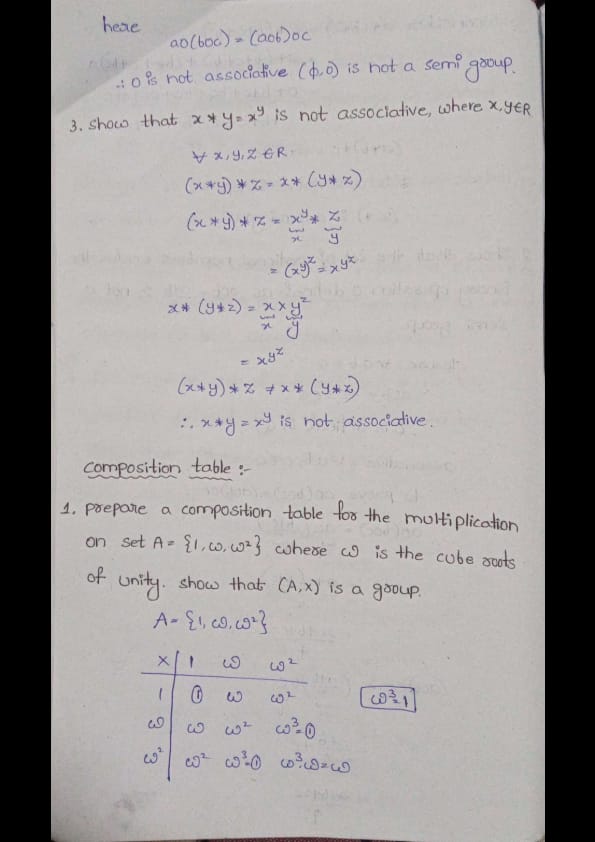 here
ao(boc) = (aob)oc
∴ o is not associative (φ,o) is not a semi group.
3. show that x * y = x^y is not associative, where x,y∈R
∀ x,y,z ∈R
(x*y) * z = x* (y*z)
(x*y) * z = x^y * z
x y
= (x^y)^z = x^yz
x* (y*z) = x x y^z
x y
= x^y^z
(x*y) * z ≠ x * (y*z)
∴ x*y = x^y is not associative.
composition table :-
1. prepare a composition table for the multiplication
on set A = {1, ω, ω²} where ω is the cube roots
of unity. show that (A,x) is a group.
A = {1, ω, ω²}
x 1 ω ω²
1 1 ω ω² ω³=1
ω ω ω² ω³=1
ω² ω² ω³=1 ω³.ω=ω